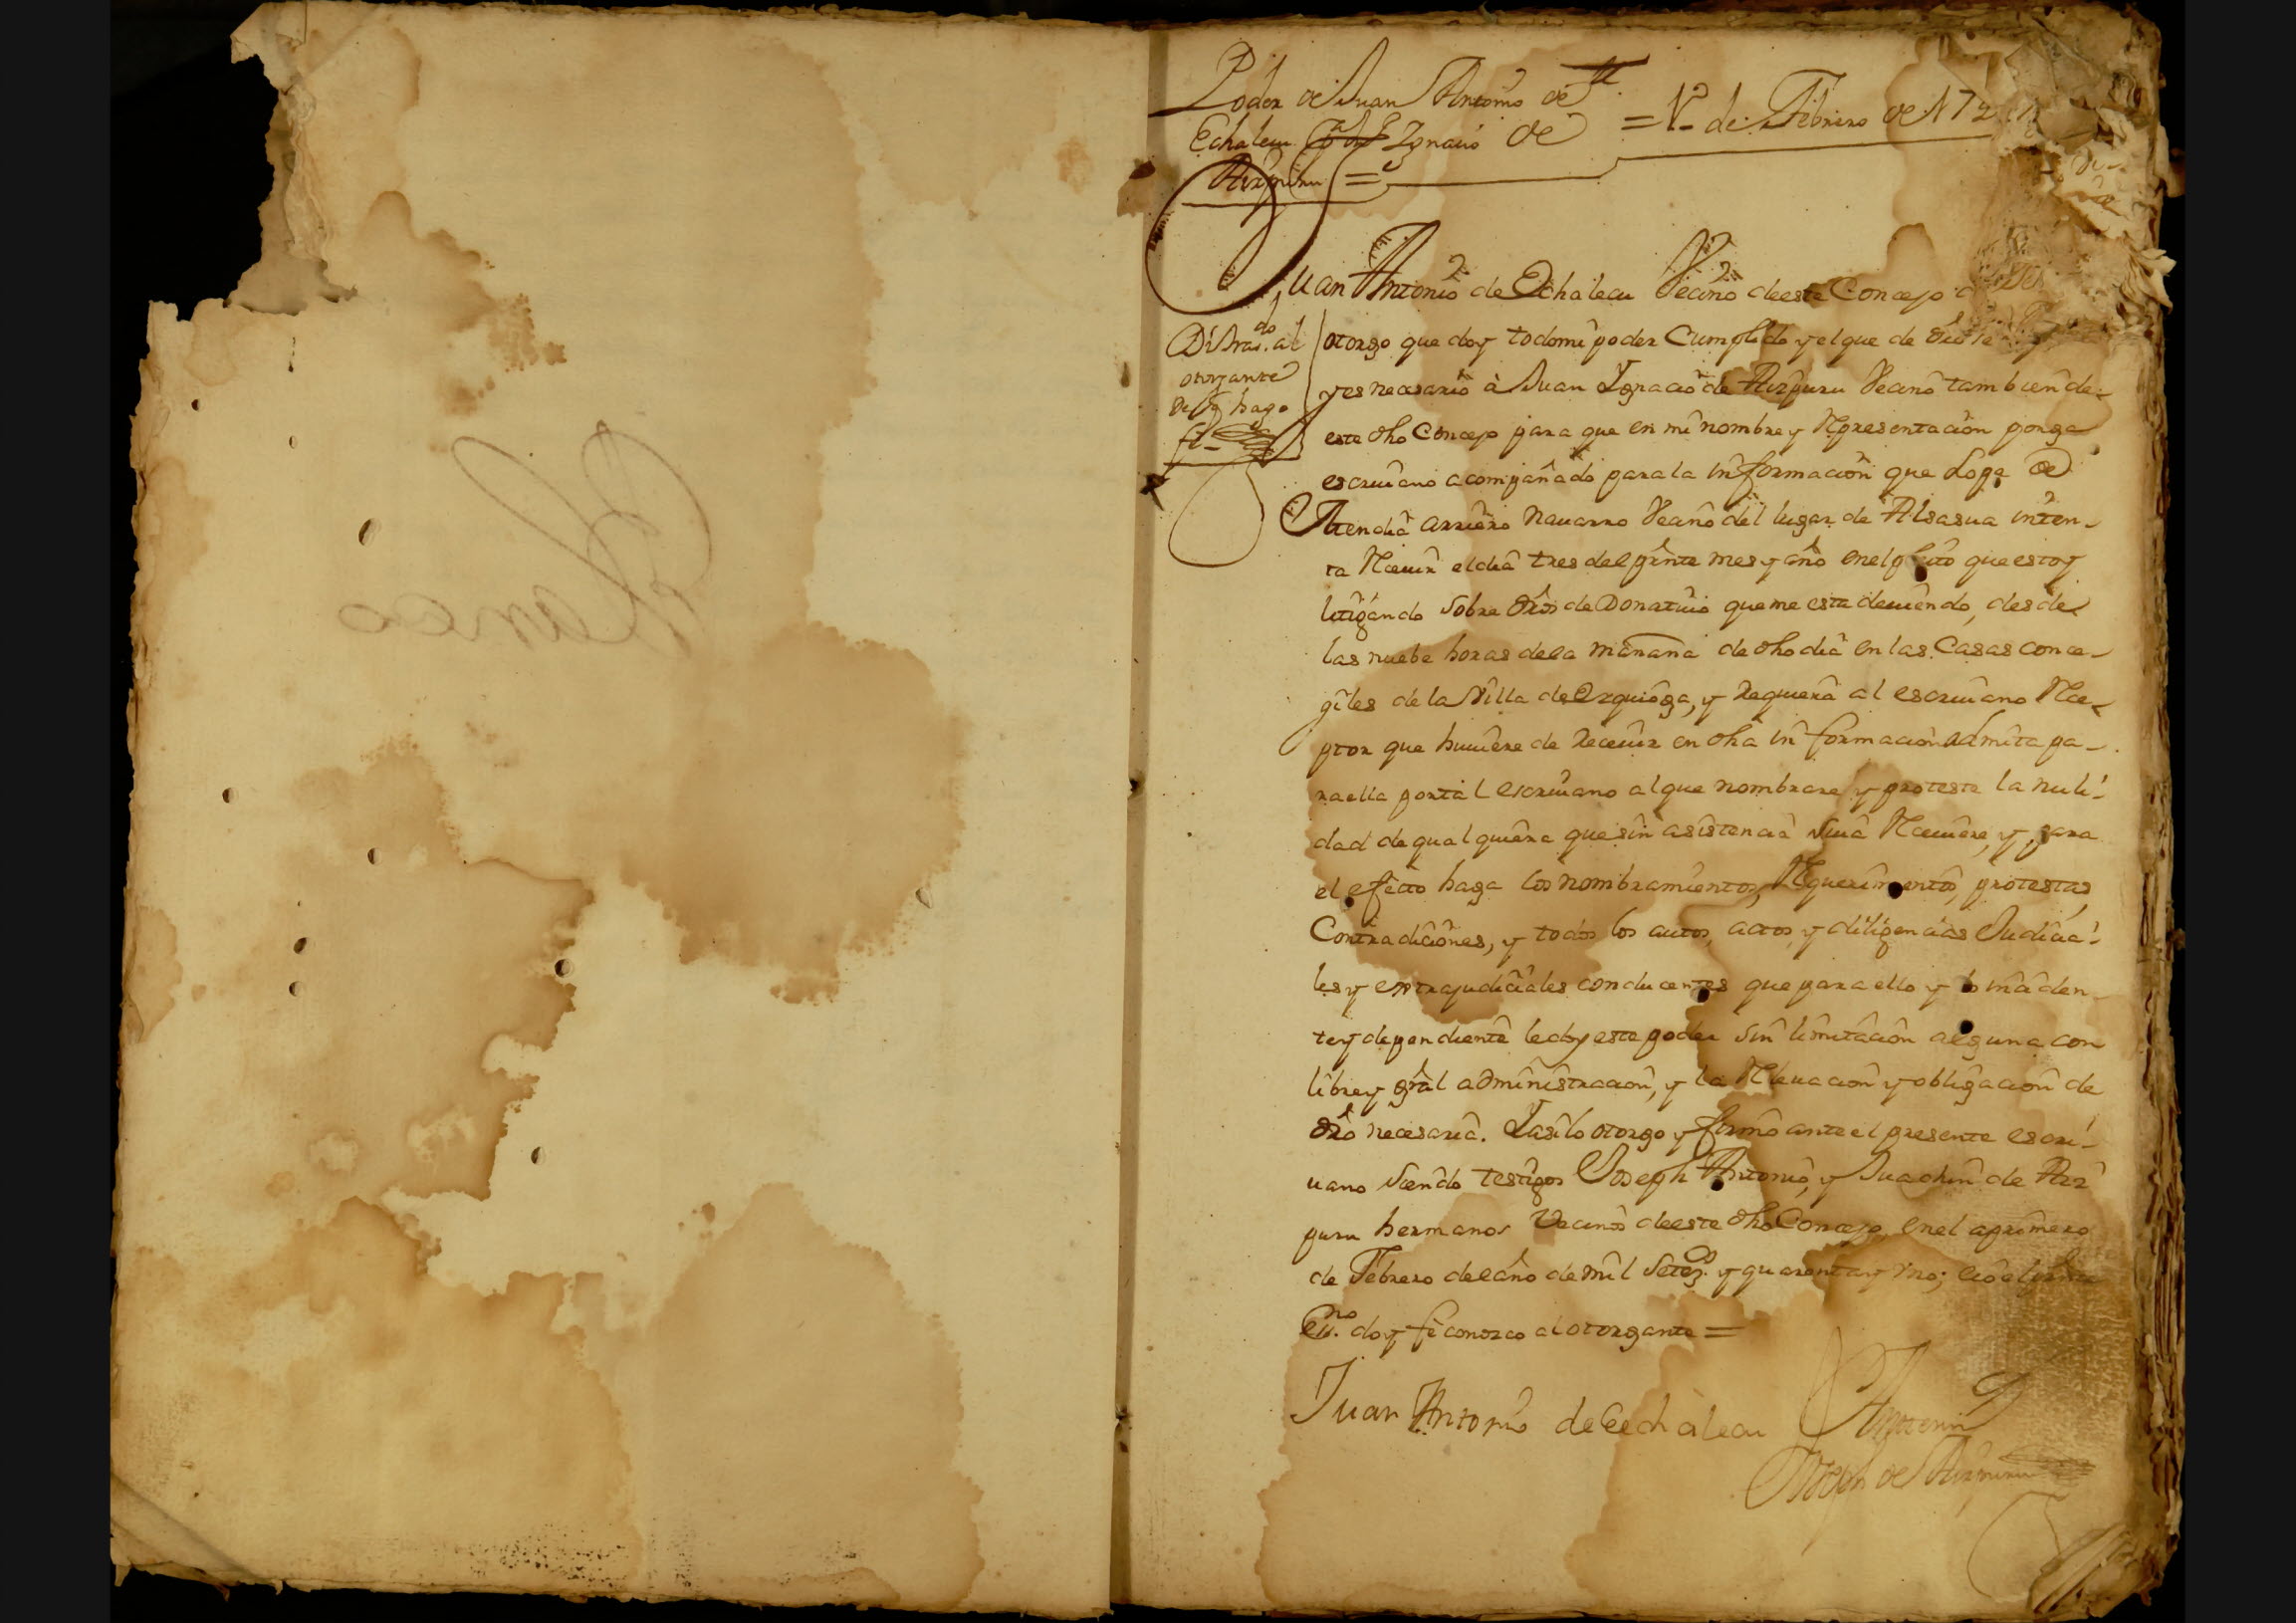 Poder de Juan Antonio de
Echalecu Ignacio de = 1.º de Febrero de 174
Aizpuru =
Juan Antonio de Echalecu Vecino deeste Concejo
otorgo que doy todomi poder Cumplido yelque de dro se
yes necesario à Juan Ygnacio de Aizpuru Vecino tambien de
este dho Concejo para que en mi nombre y Representacion ponga
escriuano acompañado parala informacion que Lope de
Atendia arriero Nauarro Vecino del lugar de Alsasua inten-
ta Receuir eldia tres del prste mes y año enelpleito que estoy
litigando sobre dros de Donatiuio que me esta deuiendo, desde
las nuebe horas dela mañana de dho dia en las Casas conce-
giles de la Villa de Ezquioga, y requiera al escriuano Rce-
ptor que huuiere de receuir en dha informacion admita pa-
raella portal escriuano alque nombrare y proteste la nuli-
dad de qualquiera que sin asistencia suia Receuiere, y para
el efecto haga los nombramientos, Requerimientos, protestas
Contradiciones, y todos los autos, actos y diligencias Judicia-
les y extrajudiciales conducentes que para ello y lo inciden-
tey dependiente ledoy este poder sin limitacion alguna con
librey gral administracion, y la Releuacion y obligacion de
dro necesaria. Yasilo otorgo y firmo ante el presente escri-
uano siendo testigos Joseph Antonio, y Juachin de Aiz
puru hermanos Vecinos deeste dho Concejo, enel aprimero
de Febrero del año de mil setez.os y quarenta y vno; eio el prste
Ess.no doy fe conozco al otorgante =
Juan Antonio de Echalecu Ante mi
Joseph de Aizpuru
Di tras.do al
otorgante
de q hago
fe-
Blanco